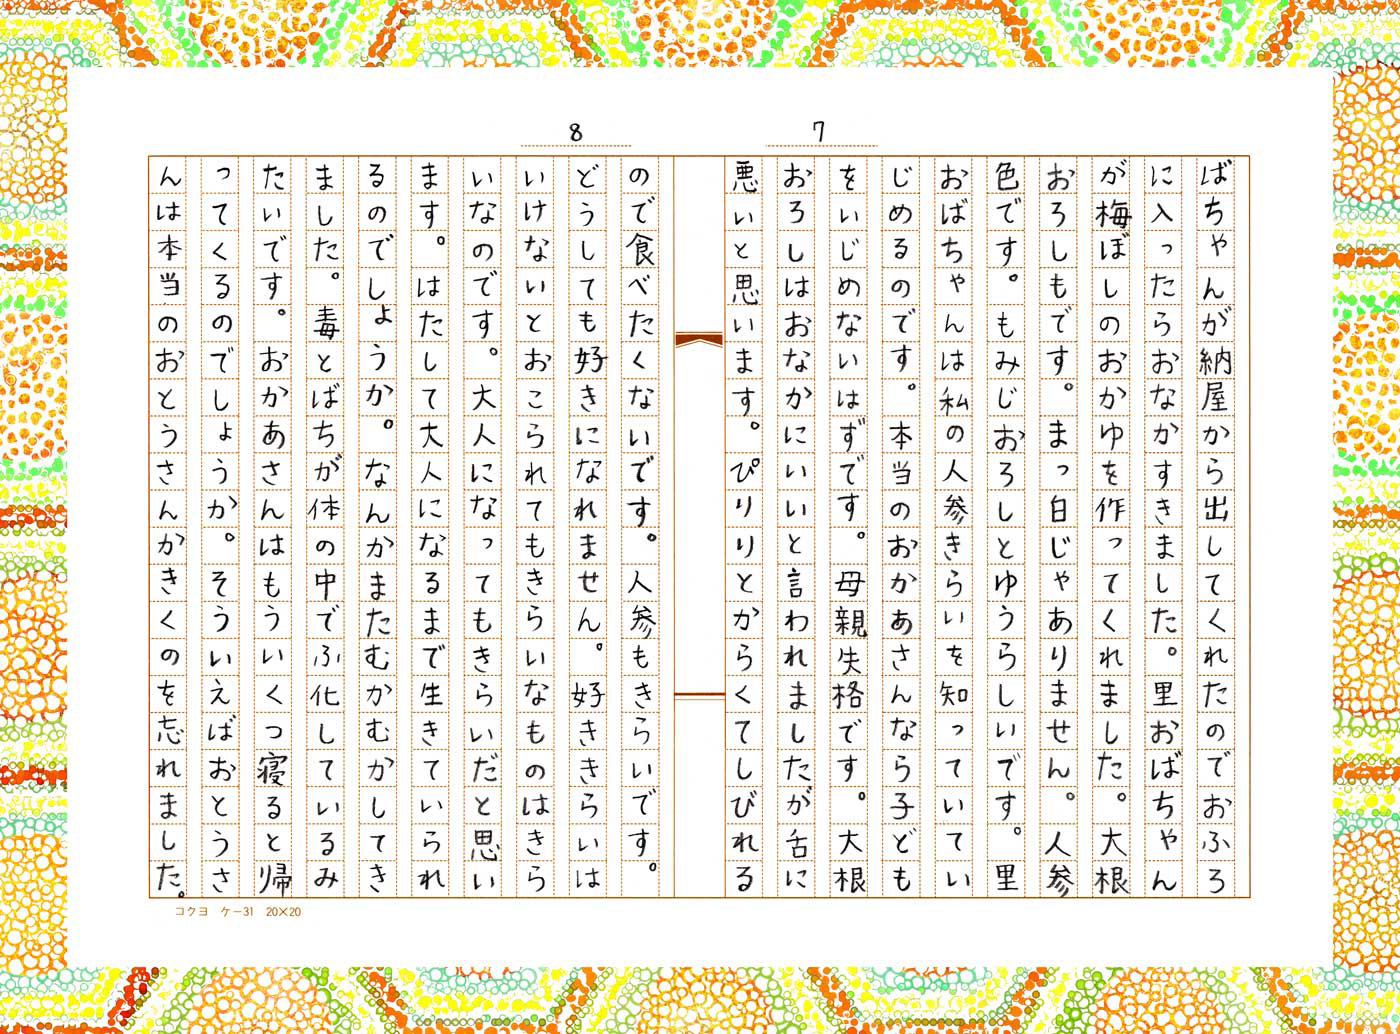 7
ばちゃんが納屋から出してくれたのでおふろ
に入ったらおなかすきました。里おばちゃん
が梅ぼしのおかゆを作ってくれました。大根
おろしもです。まっ白じゃありません。人参
色です。もみじおろしとゆうらしいです。里
おばちゃんは私の人参きらいを知っていてい
じめるのです。本当のおかあさんなら子ども
をいじめないはずです。母親失格です。大根
おろしはおなかにいいと言われましたが舌に
悪いと思います。ぴりりとからくてしびれる
8
ので食べたくないです。人参もきらいです。
どうしても好きになれません。好ききらいは
いけないとおこられてもきらいなものはきら
いなのです。大人になってもきらいだと思い
ます。はたして大人になるまで生きていられ
るのでしょうか。なんかまたむかむかしてき
ました。毒とばちが体の中でふ化しているみ
たいです。おかあさんはもういくつ寝ると帰
ってくるのでしょうか。そういえばおとうさ
んは本当のおとうさんかきくのを忘れました。
コクヨ ケ-31 20×20